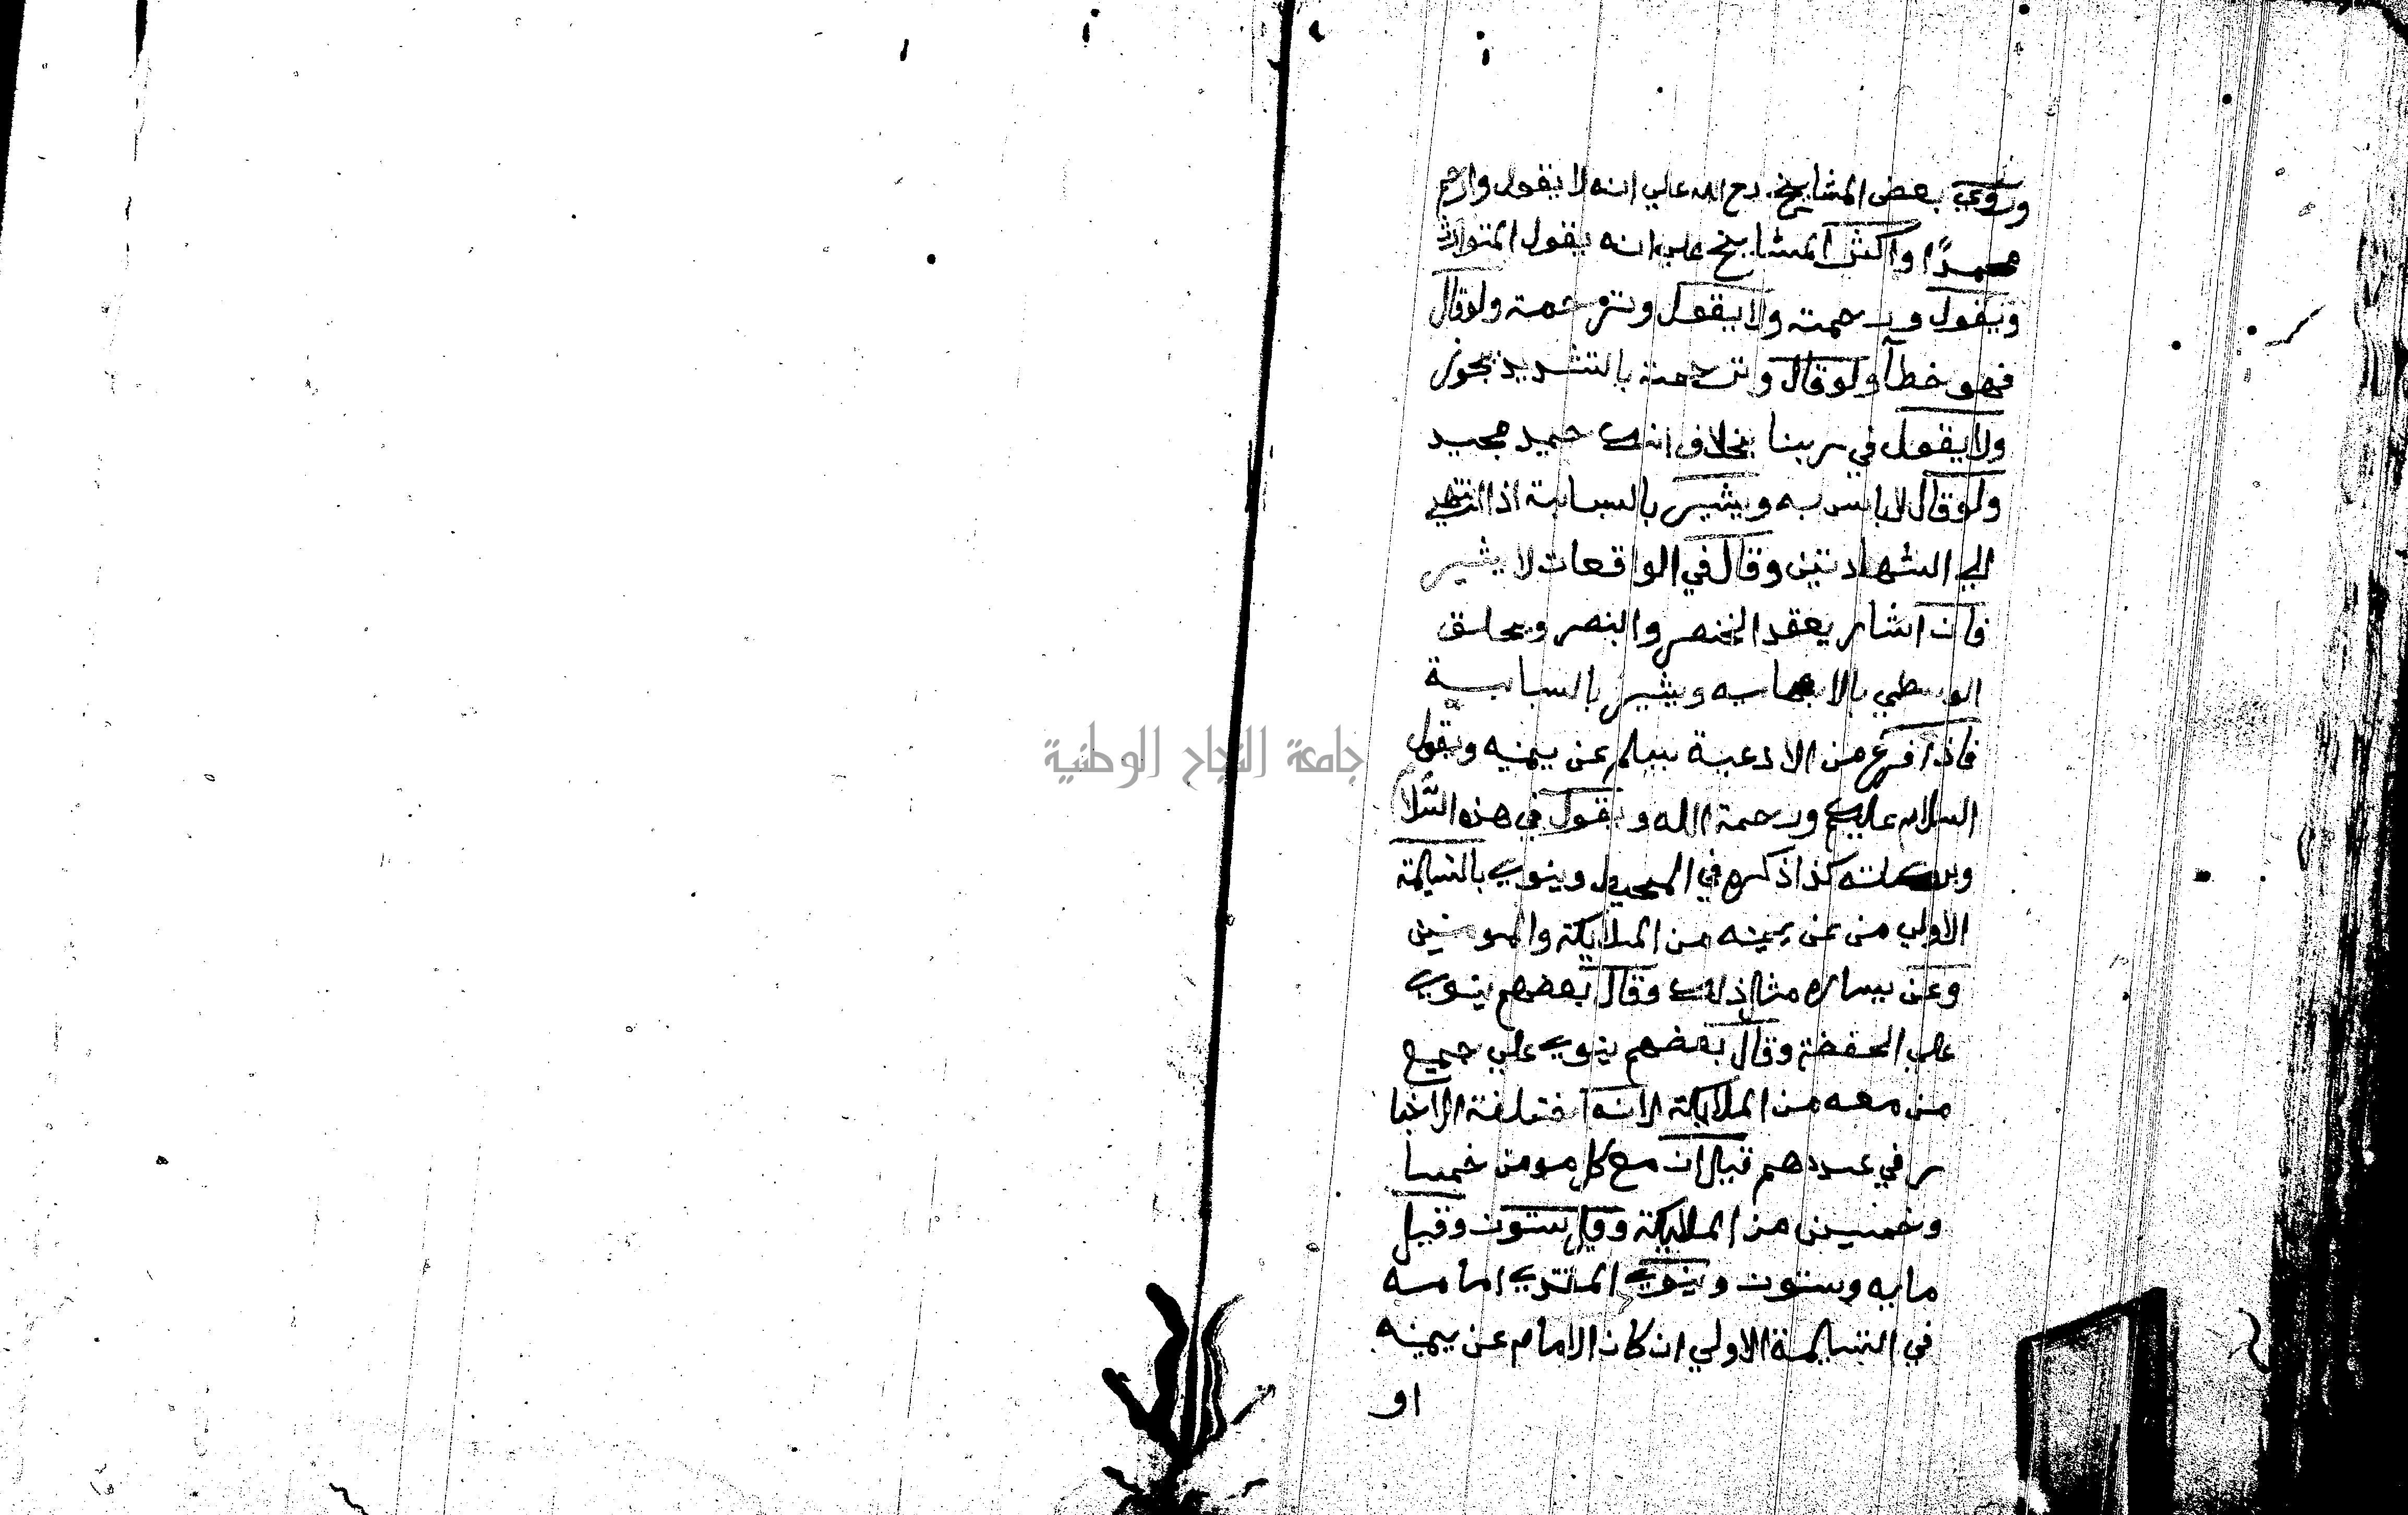 وروي بعض المشايخ رح الله علي انه لا يقول وارحم
محمدًا واكثر المشايخ علي انه يقول المتوارث
ويقول ورحمته ولا يقول وترحمة ولو قال
فهو خطأ ولو قال وترحمة بالتشديد يجوز
ولا يقول في ربنا بخلاف انك حميد مجيد
ولو قال لا باس به ويشير بالسبابة اذا انتهي
الي الشهادتين وقال في الواقعات لا يشير
فان اشار يعقد الخنصر والبنصر ويحلق
الوسطي بالابهام ويشير بالسبابة
فاذا فرغ من الادعية يسلم عن يمنيه ويقول
السلام عليكم ورحمة الله ويقول في هذه السّلا
وبركاته كذا ذكره في المحيط وينوي بالتسليمة
الاولي من عن يمينه من الملايكة والمومنين
وعن يساره مثل ذلك وقال بعضهم ينوي
علي الحفضة وقال بعضهم ينوي علي جميع
من معه من الملايكة لانه اختلفة الاخبا
ر في عددهم قيل ان مع كل مومن خمسا
وخمسين من الملايكة وقيل ستون وقيل
مايه وستون وينوي المقتدي امامه
في التسليمة الاولي ان كان الامام عن يمينه
او
جامعة النجاح الوطنية